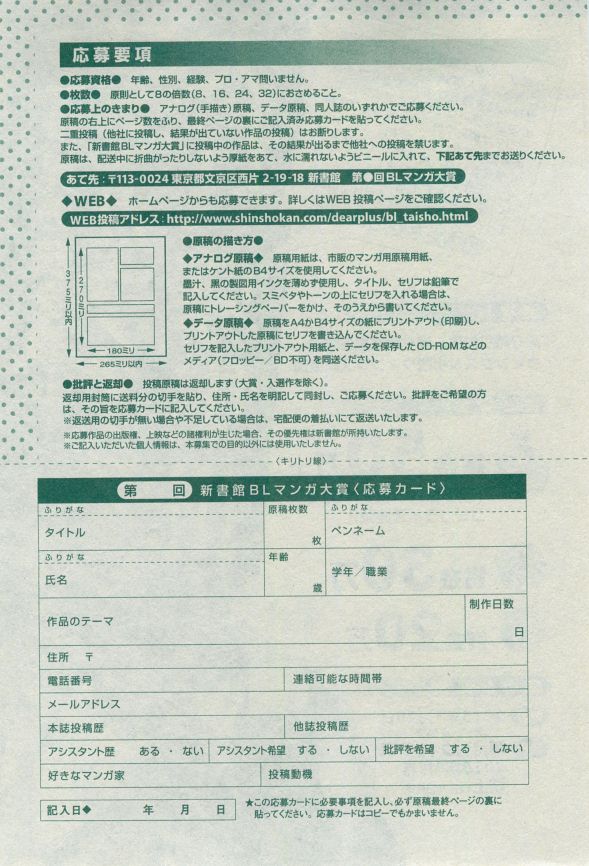 応募要項
●応募資格● 年齢、性別、経験、プロ・アマ問いません。
●枚数● 原則として8の倍数(8、16、24、32)におさめること。
●応募上のきまり● アナログ(手描き)原稿、データ原稿、同人誌のいずれかでご応募ください。
原稿の右上にページ数をふり、最終ページの裏にご記入済み応募カードを貼ってください。
二重投稿(他社に投稿し、結果が出ていない作品の投稿)はお断りします。
また、「新書館BLマンガ大賞」に投稿中の作品は、その結果が出るまで他社への投稿を禁じます。
原稿は、配送中に折曲がったりしないよう厚紙をあて、水に濡れないようビニールに入れて、下記あて先までお送りください。
あて先:〒113-0024 東京都文京区西片 2-19-18 新書館 第●回BLマンガ大賞
◆WEB◆ ホームページからも応募できます。詳しくはWEB投稿ページをご確認ください。
WEB投稿アドレス:http://www.shinshokan.com/dearplus/bl_taisho.html
375ミリ以内
270ミリ
180ミリ
265ミリ以内
●原稿の描き方●
◆アナログ原稿◆ 原稿用紙は、市販のマンガ用原稿用紙、
またはケント紙のB4サイズを使用してください。
墨汁、黒の製図用インクを薄めず使用し、タイトル、セリフは鉛筆で
記入してください。スミベタやトーンの上にセリフを入れる場合は、
原稿にトレーシングペーパーをかけ、そのうえから書いてください。
◆データ原稿◆ 原稿をA4かB4サイズの紙にプリントアウト(印刷)し、
プリントアウトした原稿にセリフを書き込んでください。
セリフを記入したプリントアウト用紙と、データを保存したCD-ROMなどの
メディア(フロッピー/BD不可)を同送ください。
●批評と返却● 投稿原稿は返却します(大賞・入選作を除く)。
返却用封筒に送料分の切手を貼り、住所・氏名を明記して同封し、ご応募ください。批評をご希望の方
は、その旨を応募カードに記入してください。
※返送用の切手が無い場合や不足している場合は、宅配便の着払いにて返送いたします。
※応募作品の出版権、上映などの諸権利が生じた場合、その優先権は新書館が所持いたします。
※ご記入いただいた個人情報は、本募集での目的以外には使用いたしません。
〈キリトリ線〉
第 回 新書館BLマンガ大賞〈応募カード〉
ふりがな
タイトル
原稿枚数
枚
ふりがな
ペンネーム
ふりがな
氏名
年齢
歳
学年/職業
作品のテーマ
制作日数
日
住所 〒
電話番号
連絡可能な時間帯
メールアドレス
本誌投稿歴
他誌投稿歴
アシスタント歴 ある ・ ない
アシスタント希望 する ・ しない
批評を希望 する ・ しない
好きなマンガ家
投稿動機
記入日◆ 年 月 日
★この応募カードに必要事項を記入し、必ず原稿最終ページの裏に
貼ってください。応募カードはコピーでもかまいません。